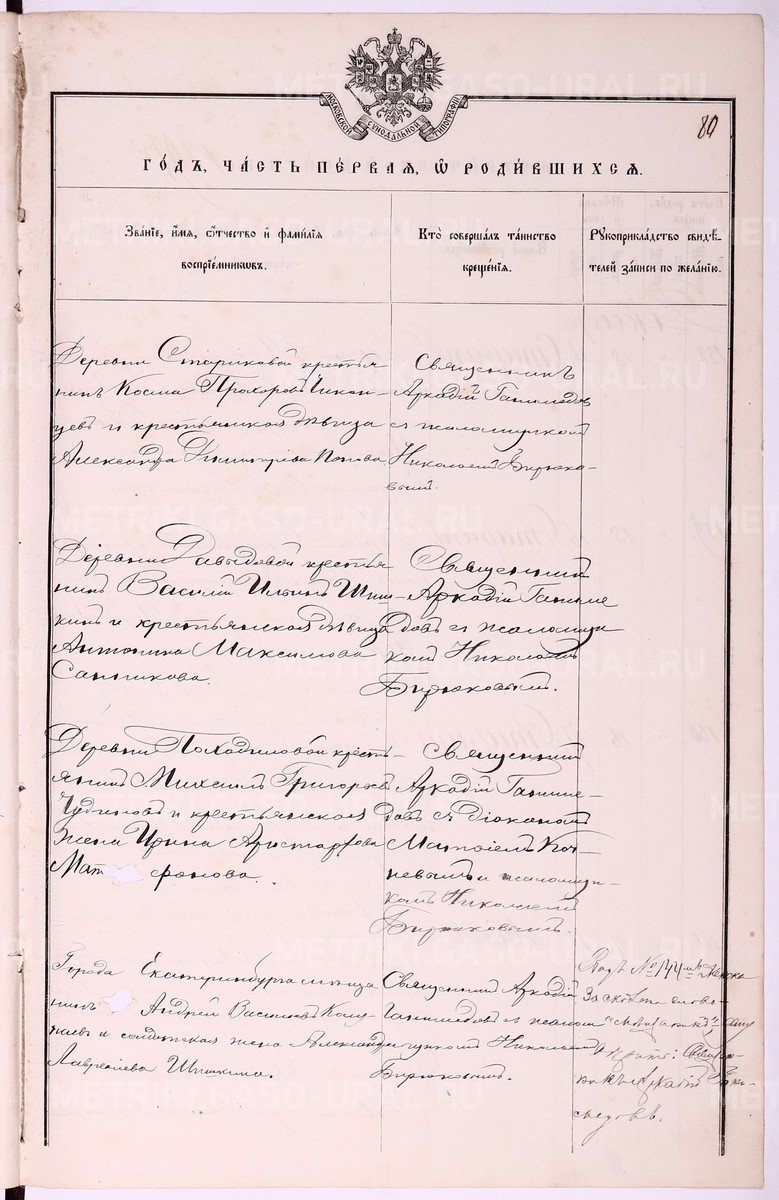 МОСКОВСКОЙ СѴНОДАЛЬНОЙ ТИПОГРАФІИ
80
ГОДЪ, ЧАСТЬ ПЕРВАЯ, Ѿ РОДИВШИХСЯ.
Званіе, имя, ѻтчество и фамилія воспріемниковъ.
Кто совершалъ таинство крещенія.
Рукоприкладство свидѣтелей записи по желанію.
Деревни Стариковой крестья
нинъ Косма Прохоровъ
цевъ и крестьянская дѣвица
Александра Димитріева Попова
Священникъ
Аркадій Ганимедов
съ псаломщикомъ
Николаемъ Бирюко-
вымъ.
Деревни Давыдовой крестья
нинъ Василій Ильинъ Шиш-
кинъ и крестьянская дѣвица
Антонина Максимова
Санникова.
Священникъ
Аркадій Ганиме
довъ съ псаломщи
комъ Николаемъ
Бирюковымъ.
Деревни Походиловой кресть-
янинъ Михаилъ Григорьев
Чудиновъ и крестьянская
жена Ирина Аристархова
Мат фонова.
Священникъ
Аркадій Ганиме-
довъ съ діакономъ
Матѳіемъ Коч-
невымъ и псаломщи-
комъ Николаемъ
Бирюковымъ.
Города Екатеринбурга мѣща
нинъ Андрей Васильевъ
и солдатская жена Александра
Лаврентьева Шишкина.
Священникъ Аркадій
Ганимедовъ съ псалом
щикомъ Николаемъ
Бирюковымъ.
Подъ № 144
За слово-
Священ-
никъ Аркадій Гани-
медовъ.
METRIKI-GASO-URAL.RU